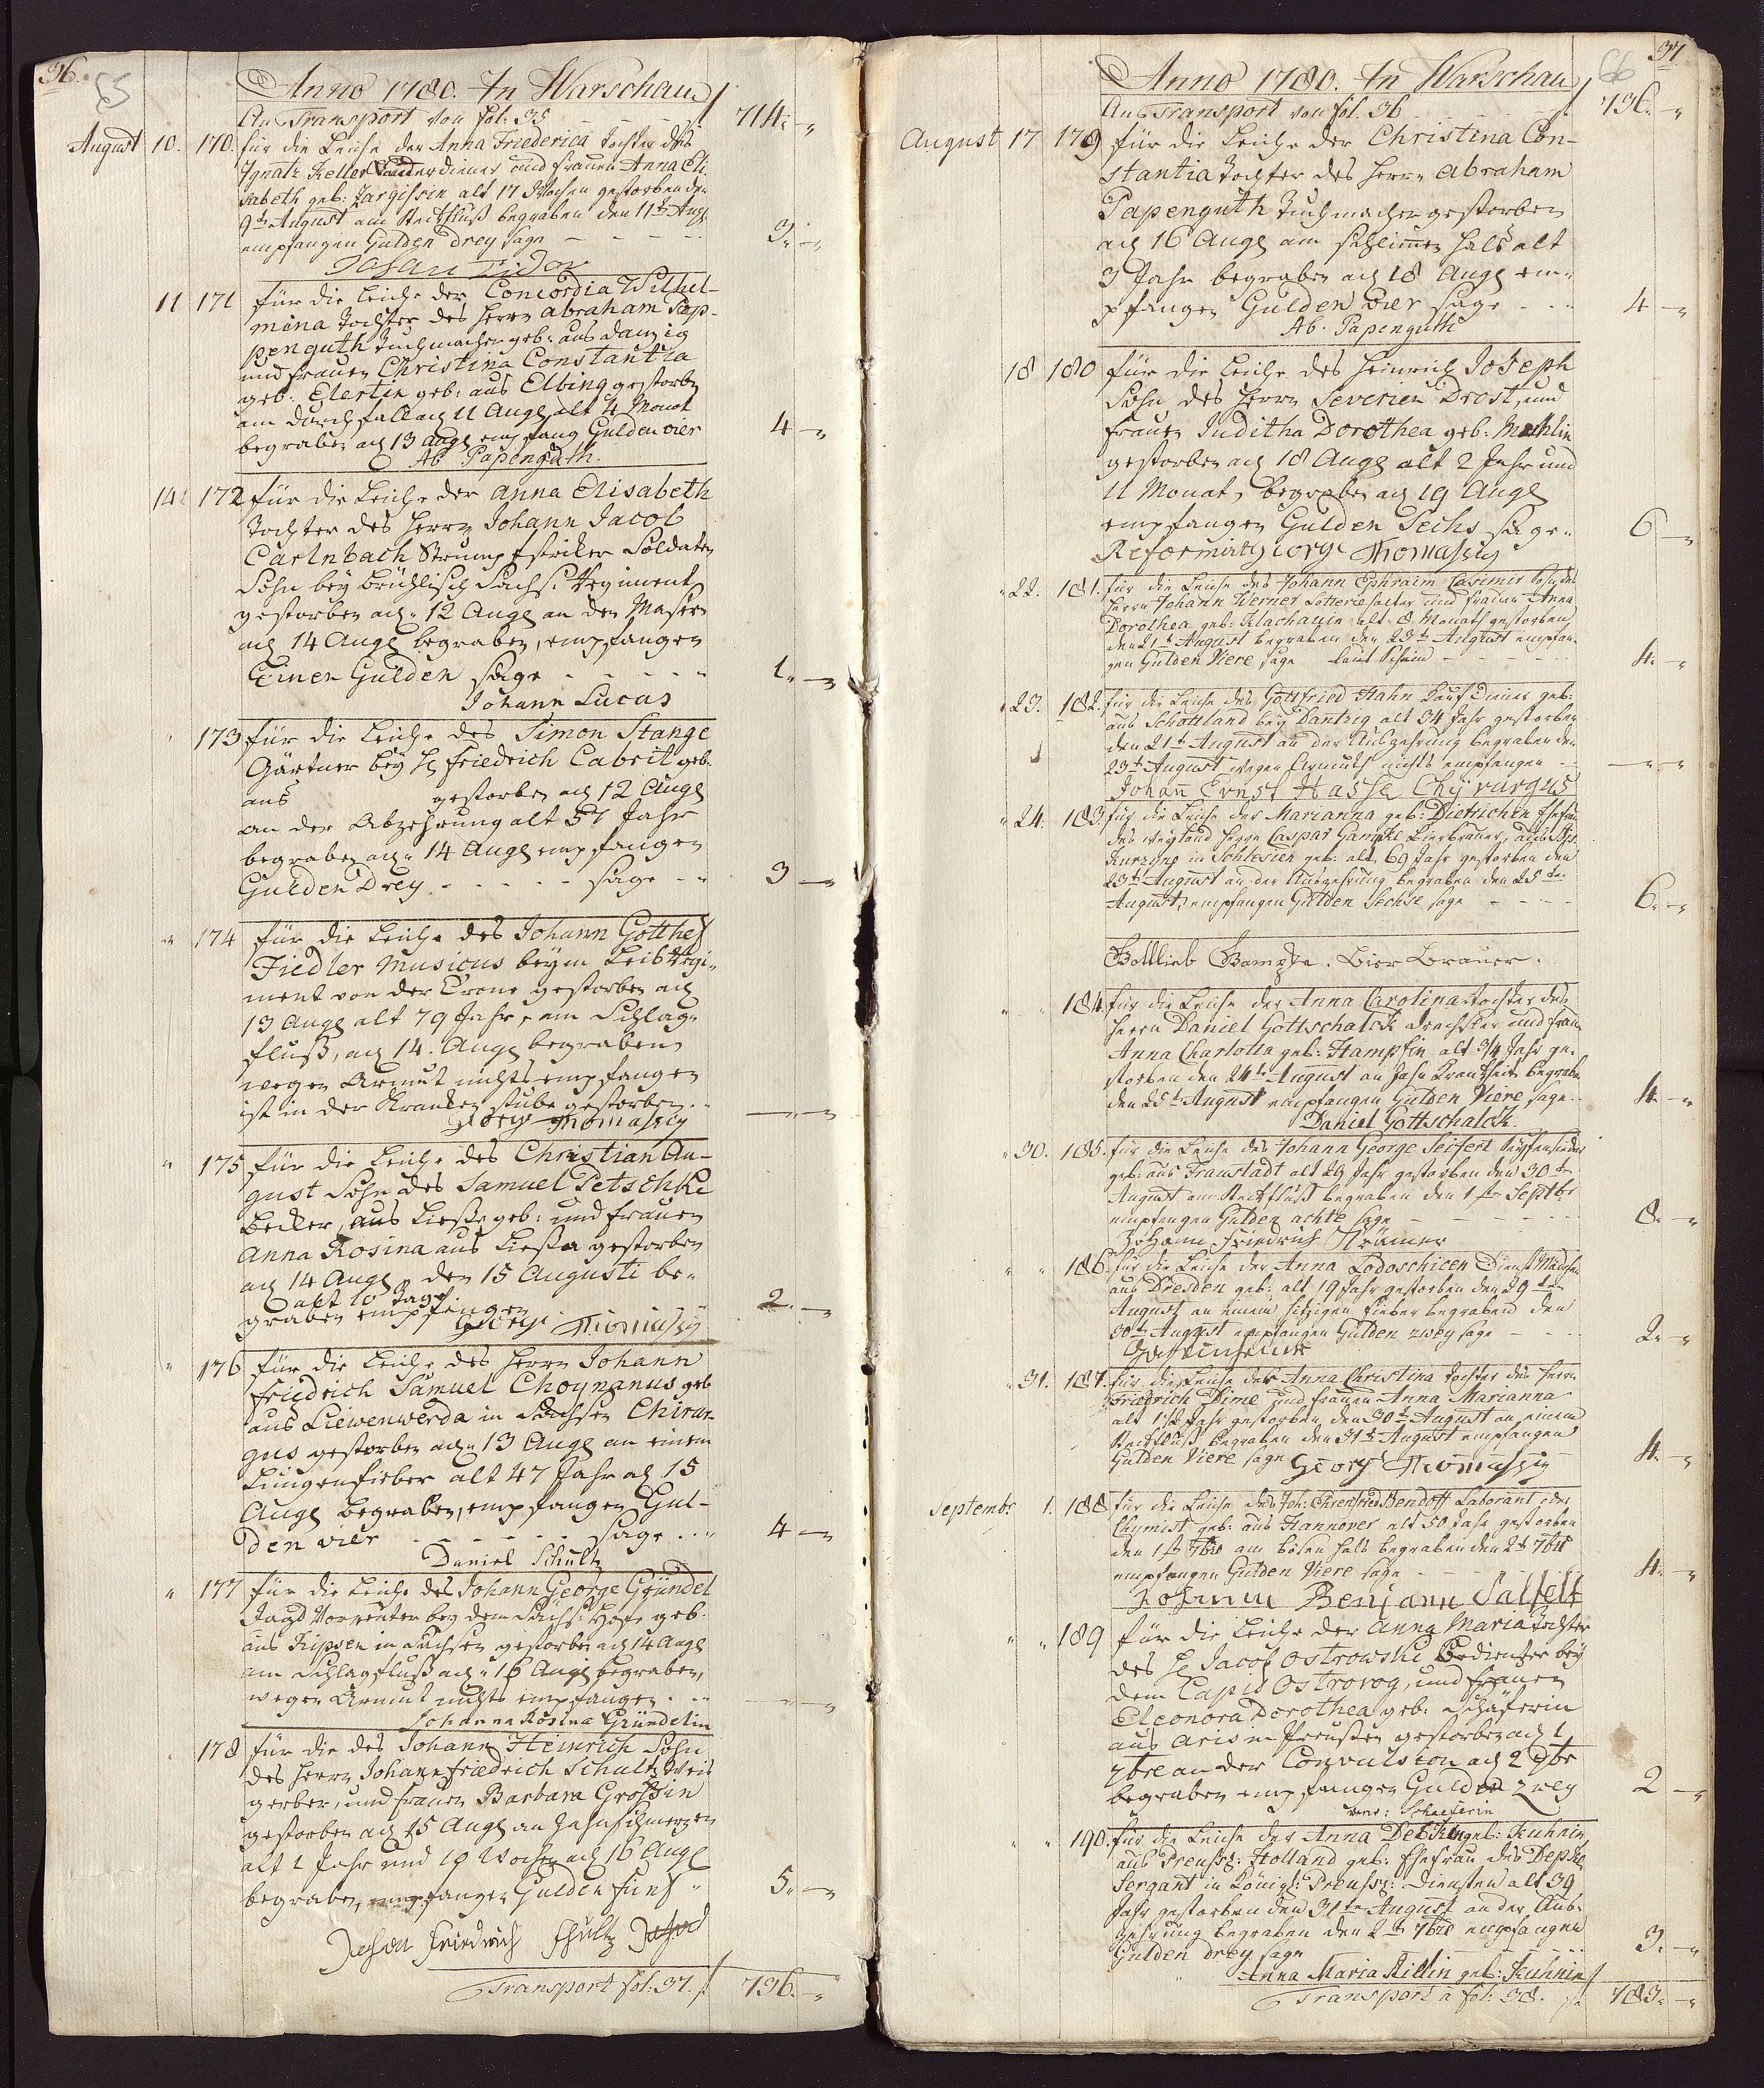 36.
55
Anno 1780. In Warschau
An Transport von fol: 35 714. -
August 10. 170. für die Leiche der Anna Friederica Tochter des
Ignatz Keller diener und Frauen Anna Eli
sabeth geb: alt 17 Wochen gestorben den
9t August am Steckfluß begraben den 11t Aug
empfangen Gulden drey sage - - - - 3. -
11 171 für die Leiche der Concordia Wilhel-
mina Tochter des Herrn Abraham Pap-
penguth Tuchmacher geb: aus Danzig
und Frauen Christina Constantia
geb: Elertin geb: aus Elbing gestorben
am Durchfall 11 Aug alt 4 Monat
begraben 13 Aug empfang Gulden vier 4 -
Ab Papenguth.
14 172 für die Leiche der Anna Elisabeth
Tochter des Herrn Johann Jacob
Carlnbach Strumpfstriker Soldaten
Sohn bey Sächs: Regiment
gestorben 12 Aug an den Masern
14 Aug begraben, empfangen
Einen Gulden sage - - - - 1. -
Johann Lucas
173 für die Leiche des Simon Stange
Gärtner bey H Friedrich Cabrit geb.
aus gestorben 12 Aug
an der Abzehrung alt 57 Jahr
begraben 14 Aug empfangen
Gulden Drey - - - - - sage - 3 -
174 für die Leiche des Johann Gotthelf
Fiedler Musicus beym Leib Regi-
ment von der Crone gestorben
13 Aug alt 79 Jahr, am Schlag-
fluß, 14. Aug begraben
wegen Armut nichts empfangen
ist in der Kranken stube gestorben. - -
George Thomaszig
175 für die Leiche des Christian Au-
gust Sohn des Samuel Petschke
Becker, aus Liessa geb: und Frauen
Anna Rosina aus Liessa gestorben
14 Aug den 15 Augusti be-
alt 10 Tage
graben empfangen 2. -
George Thomaszig
176 für die Leiche des Herrn Johann
Friedrich Samuel Choynanus geb
aus Liewenwerda in Sachsen Chirur-
gus gestorben 13 Aug an einem
Lungenfieber alt 47 Jahr 15
Aug begraben, empfangen Gul-
den vier - - - - - sage 4 -
Daniel Schultz
177 für die Leiche des Johann George Gründel
Jagd bey dem Sächs: Hofe geb.
aus in Sachsen gestorben 14 Aug
am Schlagfluß 16 Aug begraben,
wegen Armut nichts empfangen. - -
Johanna Rosina Gründelin
178 für die des Johann Heinrich Sohn
des Herrn Johann Friedrich Schultz Weis
gerber, und Frauen Barbara Großin
gestorben 15 Aug an Zahnschmerzen
alt 1 Jahr und 19 Wochen 16 Aug
begraben, empfangen Gulden fünf 5. -
Johan Friedrich Schultz
Transport fol: 37. 736. -
37
66
Anno 1780. In Warschau
An Transport von fol. 36 736. -
August 17 179 für die Leiche der Christina Con-
stantia Tochter des Herrn Abraham
Papenguth Tuchmacher gestorben
16 Aug am schlimmen Hals alt
3 Jahr begraben 18 Aug em-
pfangen Gulden Vier sage - - 4 -
Ab. Papenguth
18 180 für die Leiche des Heinrich Joseph
Sohn des Herrn Severien Drost, und
Frauen Juditha Dorothea geb:
gestorben 18 Aug alt 2 Jahr und
11 Monat, begraben 19 Aug
empfangen Gulden Sechs sage 6 -
Reformirt George Thomaszig
22. 181. für die Leiche des Johann Ephraim Casimir Sohn des
Herrn Johann Werner Lotteriehalter und Frauen Anna
Dorothea geb: Klachauin alt 8 Monath gestorben
den 21t August begraben den 23t August empfan-
gen Gulden Viere sage laut Schein - - - 4. -
23. 182. für die Leiche des Gottfried Hahn Kauf Diener geb:
aus Schottland bey Dantzig alt 34 Jahr gestorben
den 21t August an der Auszehrung begraben den
23t August wegen Armuth nichts empfangen - -
Johan Ernst Hasse Chyrurgus
24. 183 für die Leiche der Marianna geb: Dietrichen Ehefrau
des weyland Herrn Caspar Gampke Bierbrauer, aus
in Schlesien geb: alt 69 Jahr gestorben den
23t August an der Auszehrung begraben den 25te
August, empfangen Gulden Sechse sage - - - 6. -
Gottlieb Gampke. Bier Brauer.
184 für die Leiche der Anna Carolina Tochter des
Herrn Daniel Gottschalck Drechsler und Frauen
Anna Charlotta geb: Hampfin alt 3/4 Jahr ge-
storben den 24t August an Zahn Kranckheit begraben
den 25t August empfangen Gulden Viere sage - 4. -
Daniel Gottschalck.
30. 185. für die Leiche des Johann George Seifert Seifensieder
geb: aus Fraustadt alt 29 Jahr gestorben den 30te
August am Steckfluß begraben den 1te Septbr
empfangen Gulden achte sage - - - 8. -
Johann Friedrich Krämer
186 für die Leiche der Anna Lodoschicen Dienst Mädchen
aus Dresden geb: alt 19 Jahr gestorben den 29te
August an einem hitzigen Fieber begraben den
30t August empfangen Gulden zwey sage - - 2. -
31. 187. für die Leiche der Anna Christina Tochter des Herrn
Friedrich Dime und Frauen Anna Marianna
alt 1 1/2 Jahr gestorben den 30t August an einem
Steckfluß begraben den 31t August empfangen
Gulden Viere sage George Thomaszig 4. -
Septembr 1. 188 für die Leiche des Joh: Ehrenfried Bendoff Laborant oder
Chymist geb: aus Hannover alt 50 Jahr gestorben
den 1t 7bre am bösen Hals begraben den 2t 7bre
empfangen Gulden Viere sage - - - 4. -
Johann Benjamin Salfelt
189 für die Leiche der Anna Maria Tochter
des H Jacob Ostrowski Bedienter bey
dem Ostrorog, und Frauen
Eleonora Dorothea geb: Schäferin
aus Aris in Preußen gestorben 1
7bre an der Convulsion 2 7bre
begraben empfangen Gulden zwey 2 -
Schaeferin
190. für die Leiche der Anna geb: Kuhnin
aus Preußs: Holland geb: Ehefrau des Depke
Sergant in Königl: Preußs: Diensten alt 39
Jahr gestorben den 31te August an der Aus-
zehrung begraben den 2t 7bre empfangen
Gulden drey sage - - - 3. -
Anna Maria Killin geb: Kuhnin
Transport a fol: 38. 783. -